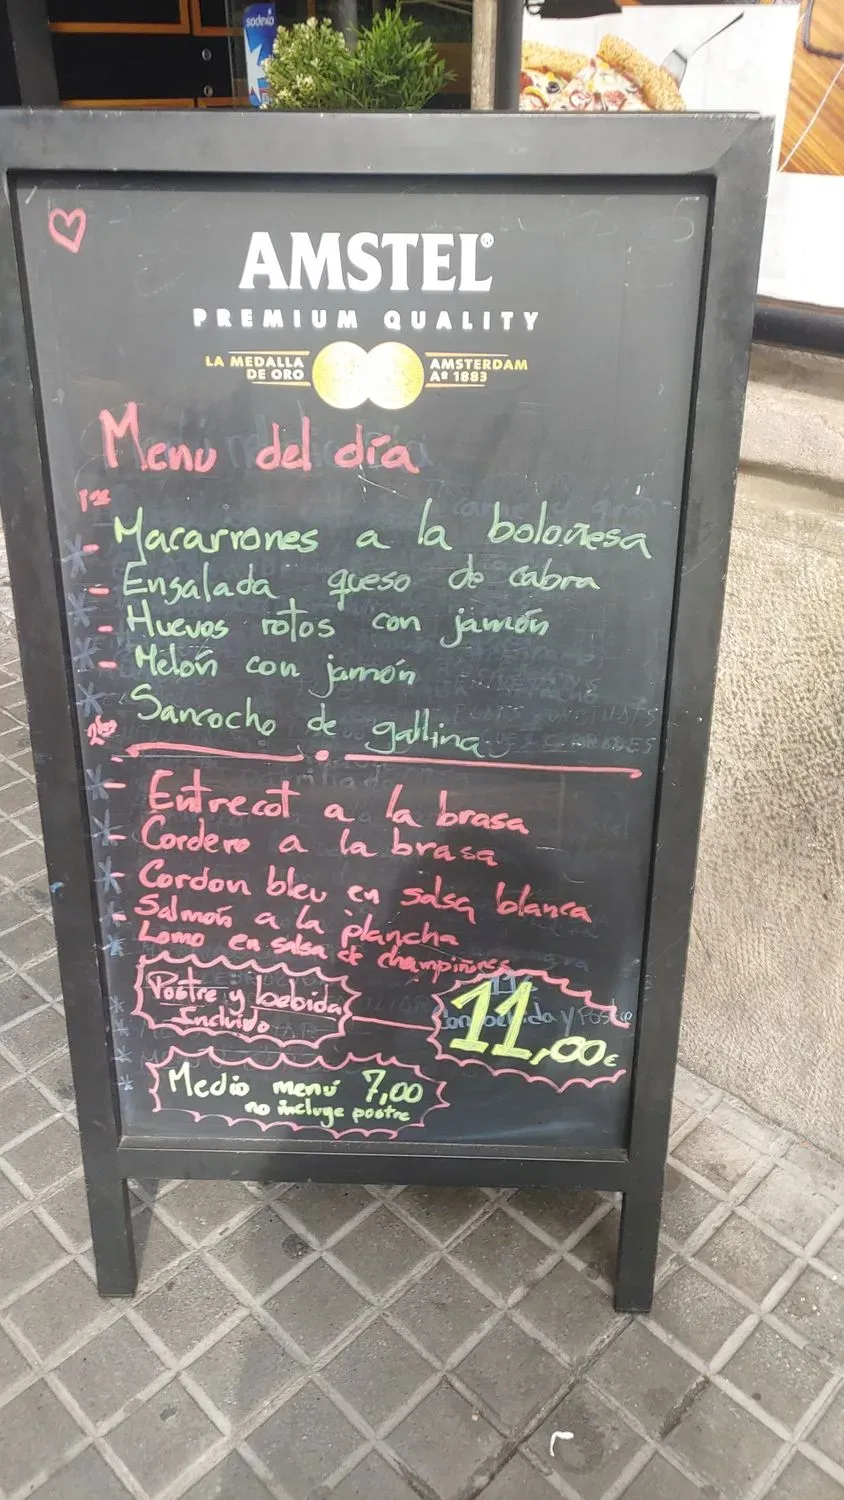 sodexo
AMSTEL®
PREMIUM QUALITY
LA MEDALLA DE ORO
AMSTERDAM Aº 1883
Menu del día
1ros
- Macarrones a la boloñesa
- Ensalada queso de cabra
- Huevos rotos con jamón
- Melón con jamón
Sancocho de gallina
2dos
- Entrecot a la brasa
- Cordero a la brasa
- Cordon bleu en salsa blanca
- Salmón a la plancha
Lomo en salsa de champiñones
Postre y bebida
Incluido
11,00€
Medio menú 7,00
no incluye postre